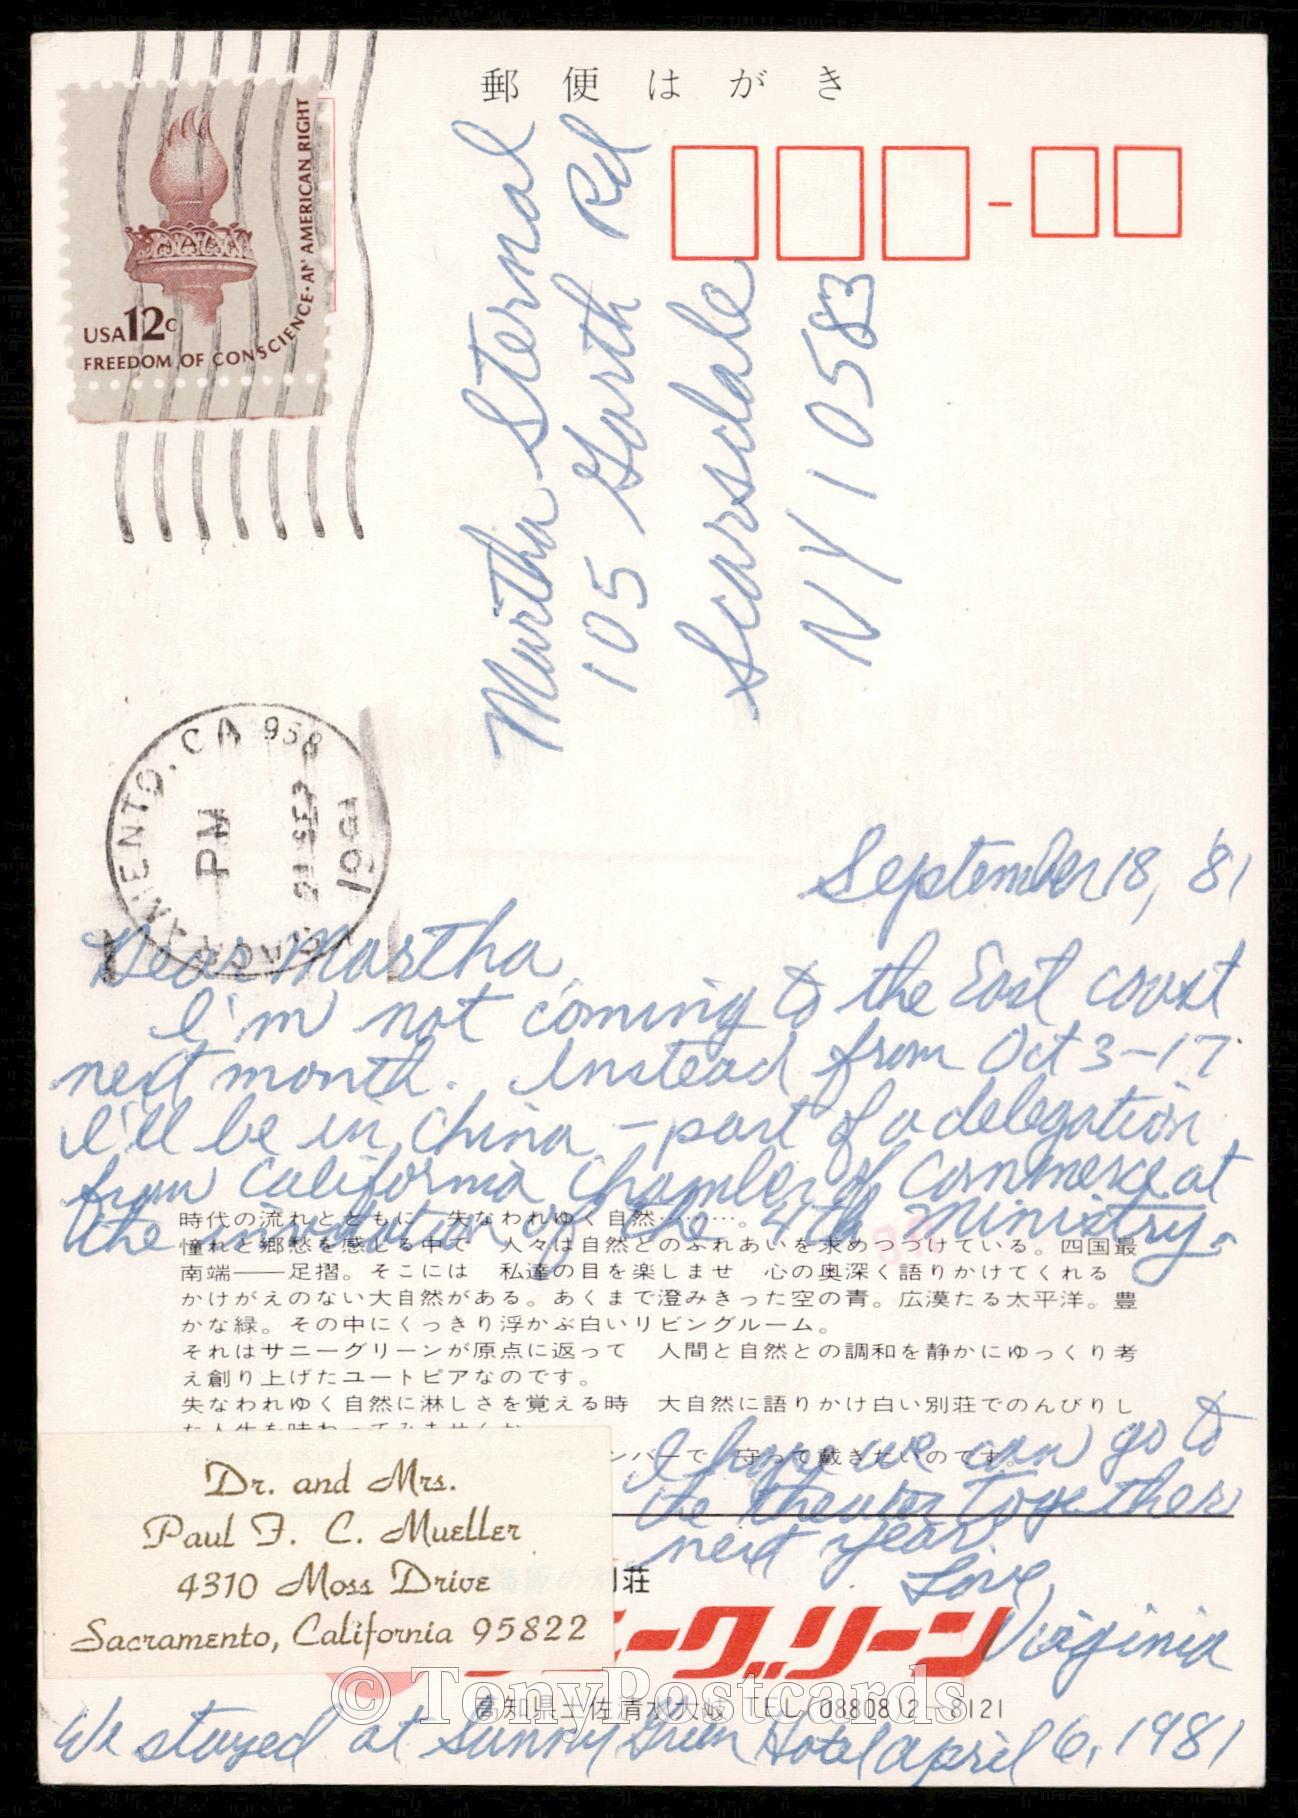 郵便はがき
USA 12c
FREEDOM OF CONSCIENCE·AN AMERICAN RIGHT
Martha Sternal
105 Garth Rd
Scarsdale
NY 10583
SACRAMENTO, CA 958
PM
1981
September 18, '81
Dear Martha
I'm not coming to the East coast
next month. Instead from Oct 3-17
I'll be in China - part of a delegation
from California Chamber of Commerce at
the invitation of the 4th Ministry.
時代の流れとともに 失なわれゆく自然………。
憧れと郷愁を感じる中で 人々は自然とのふれあいを求めつづけている。四国最
南端——足摺。そこには 私達の目を楽しませ 心の奥深く語りかけてくれる
かけがえのない大自然がある。あくまで澄みきった空の青。広漠たる太平洋。豊
かな緑。その中にくっきり浮かぶ白いリビングルーム。
それはサニーグリーンが原点に返って 人間と自然との調和を静かにゆっくり考
え創り上げたユートピアなのです。
失なわれゆく自然に淋しさを覚える時 大自然に語りかけ白い別荘でのんびりし
た人生を味わってみませんか
ンバーで 守って戴きたいのです。
I hope we can go to
the theater together
next year.
Love,
Virginia
Dr. and Mrs.
Paul F. C. Mueller
4310 Moss Drive
Sacramento, California 95822
荘
ニーグリーン
高知県土佐清水大岐 TEL(08808)2-8121
© TonyPostcards
We stayed at Sunny Green Hotel April 6, 1981